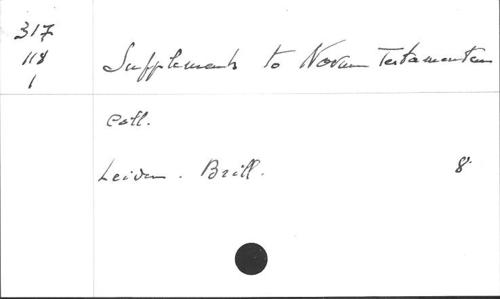 317
118
1
Supplements to Novum Testamentum
coll.
Leiden. Brill. 8°